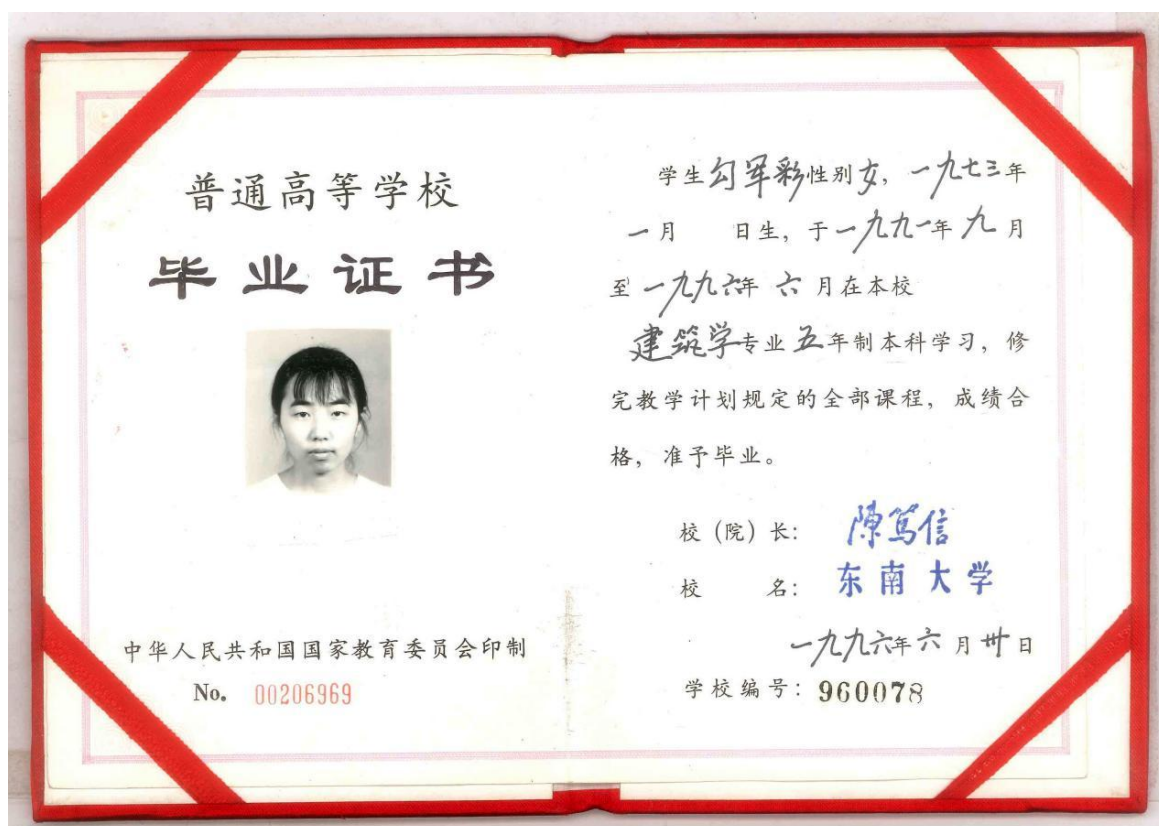 普通高等学校
毕业证书
中华人民共和国国家教育委员会印制
No. 00206969
学生勾军彩性别女，一九七三年
一月 日生，于一九九一年九月
至一九九六年六月在本校
建筑学专业五年制本科学习，修
完教学计划规定的全部课程，成绩合
格，准予毕业。
校（院）长：陳笃信
校 名：东南大学
一九九六年六月卅日
学校编号：960078